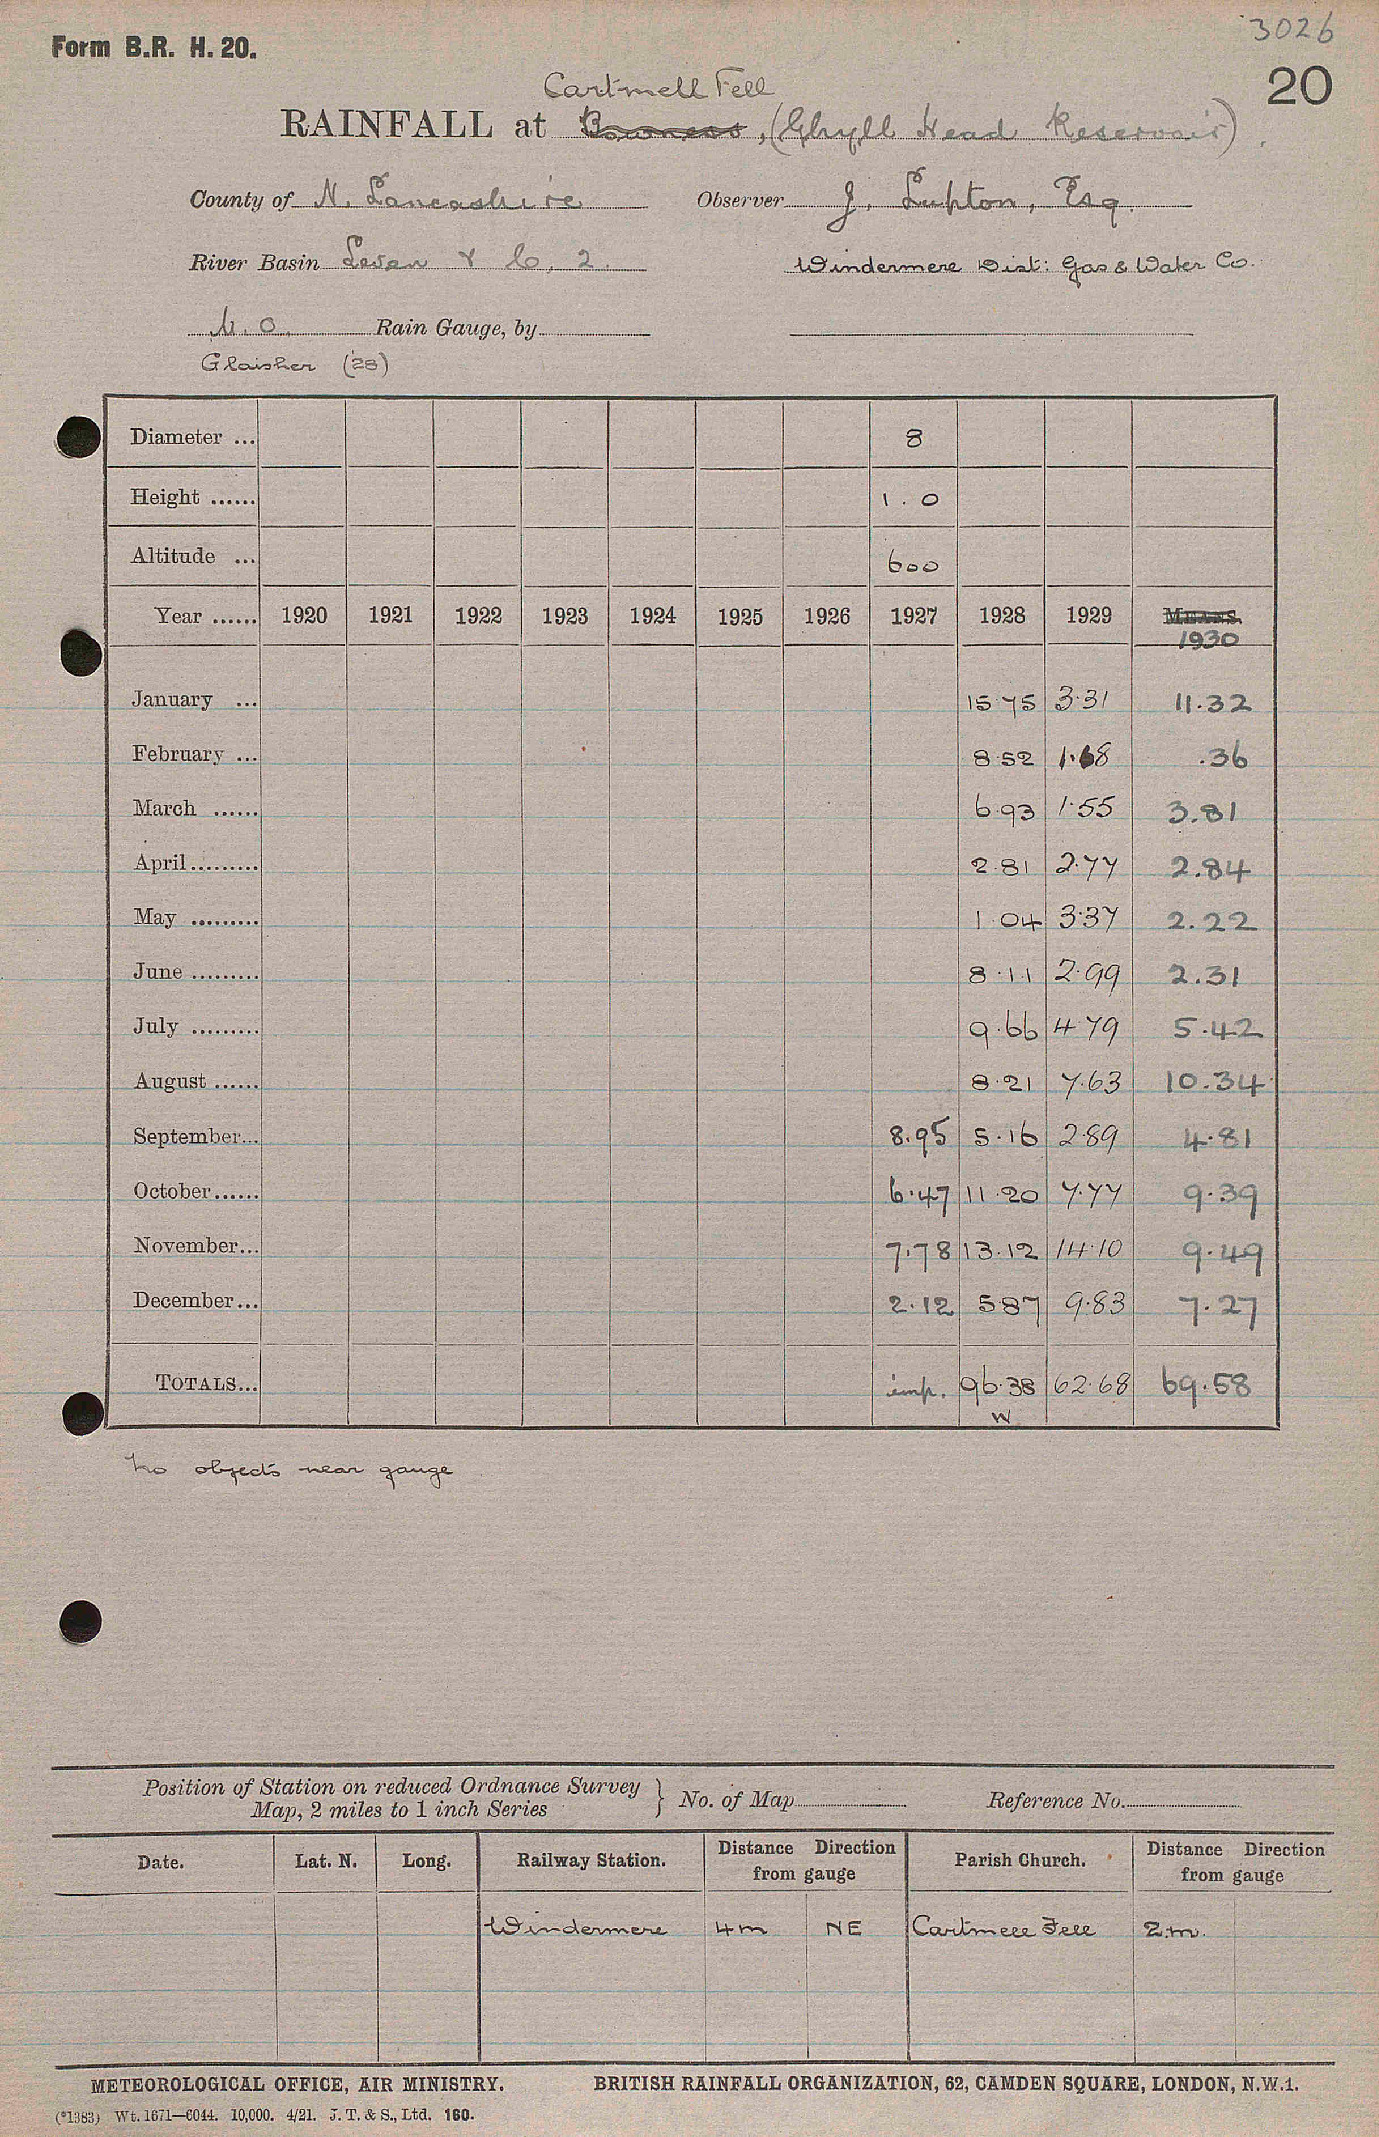 3026
Form B.R. H. 20.
20
Cartmell Fell
RAINFALL at Bowness, (Ghyll Head Reservoir)
County of N. Lancashire Observer J. Lupton, Esq.
River Basin Leven & C. 2. Windermere Dist: Gas & Water Co.
M.O. Rain Gauge, by
Glaisher ('28)
Diameter ... 8
Height ...... 1.0
Altitude ... 600
Year ...... 1920 1921 1922 1923 1924 1925 1926 1927 1928 1929 MEANS.
1930
January ... 15.75 3.31 11.32
February ... 8.52 1.68 .36
March ...... 6.93 1.55 3.81
April......... 2.81 2.77 2.84
May ......... 1.04 3.37 2.22
June ......... 8.11 2.99 2.31
July ......... 9.66 4.79 5.42
August ...... 8.21 7.63 10.34
September... 8.95 5.16 2.89 4.81
October...... 6.47 11.20 7.77 9.39
November... 7.78 13.12 14.10 9.49
December... 2.12 5.87 9.83 7.27
TOTALS... imp. 96.38 62.68 69.58
W
No objects near gauge
Position of Station on reduced Ordnance Survey
Map, 2 miles to 1 inch Series } No. of Map Reference No.
Date. Lat. N. Long. Railway Station. Distance Direction from gauge Parish Church. Distance Direction from gauge
Windermere 4m NE Cartmell Fell 2m.
METEOROLOGICAL OFFICE, AIR MINISTRY. BRITISH RAINFALL ORGANIZATION, 62, CAMDEN SQUARE, LONDON, N.W.1.
(*1383) Wt. 1671—6044. 10,000. 4/21. J. T. & S., Ltd. 160.